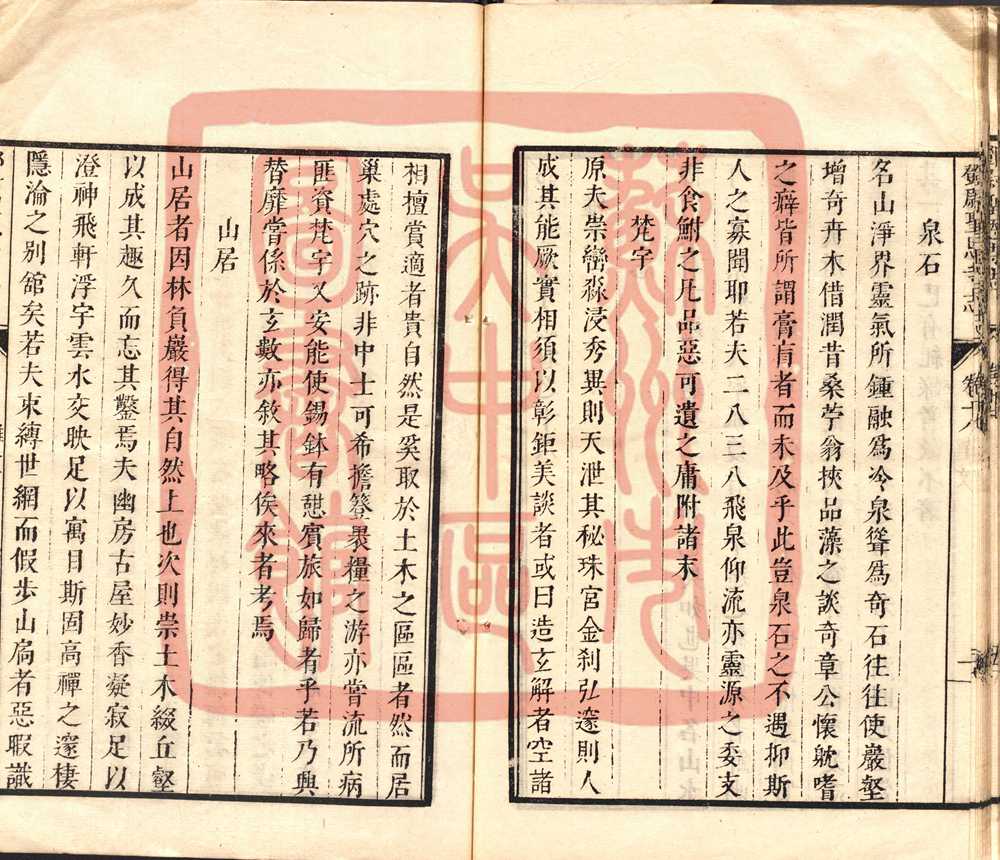 泉石
名山淨界靈氣所鍾融爲冷泉聳爲奇石往往使巖壑
增奇卉木借潤昔桑苧翁挾品藻之談奇章公懷躭嗜
之癖皆所謂膏肓者而未及乎此豈泉石之不遇抑斯
人之寡聞耶若夫二八三八飛泉仰流亦靈源之委支
非食鮒之比品惡可遺之庸附諸末
梵宇
原夫崇巒淼浸秀異則天泄其秘珠宮金刹弘邃則人
成其能厥實相須以彰鉅美談者或曰造玄解者空諸
相擅賞適者貴自然是奚取於土木之區區者然而居
巢處穴之跡非中士可希擔簦褁糧之游亦嘗流所病
匪資梵宇又安能使錫鉢有憇賓旅如歸者乎若乃興
替靡嘗係於玄數亦敘其略俟來者考焉
山居
山居者因林負巖得其自然上也次則崇土木綴丘壑
以成其趣久而忘其鑿焉夫幽房古屋妙香凝寂足以
澄神飛軒浮宇雲水交映足以寓目斯固高禪之邃棲
隱淪之别舘矣若夫束縛世網而假步山扃者惡暇識
卷十八
蘇州市
吳中區
圖書館